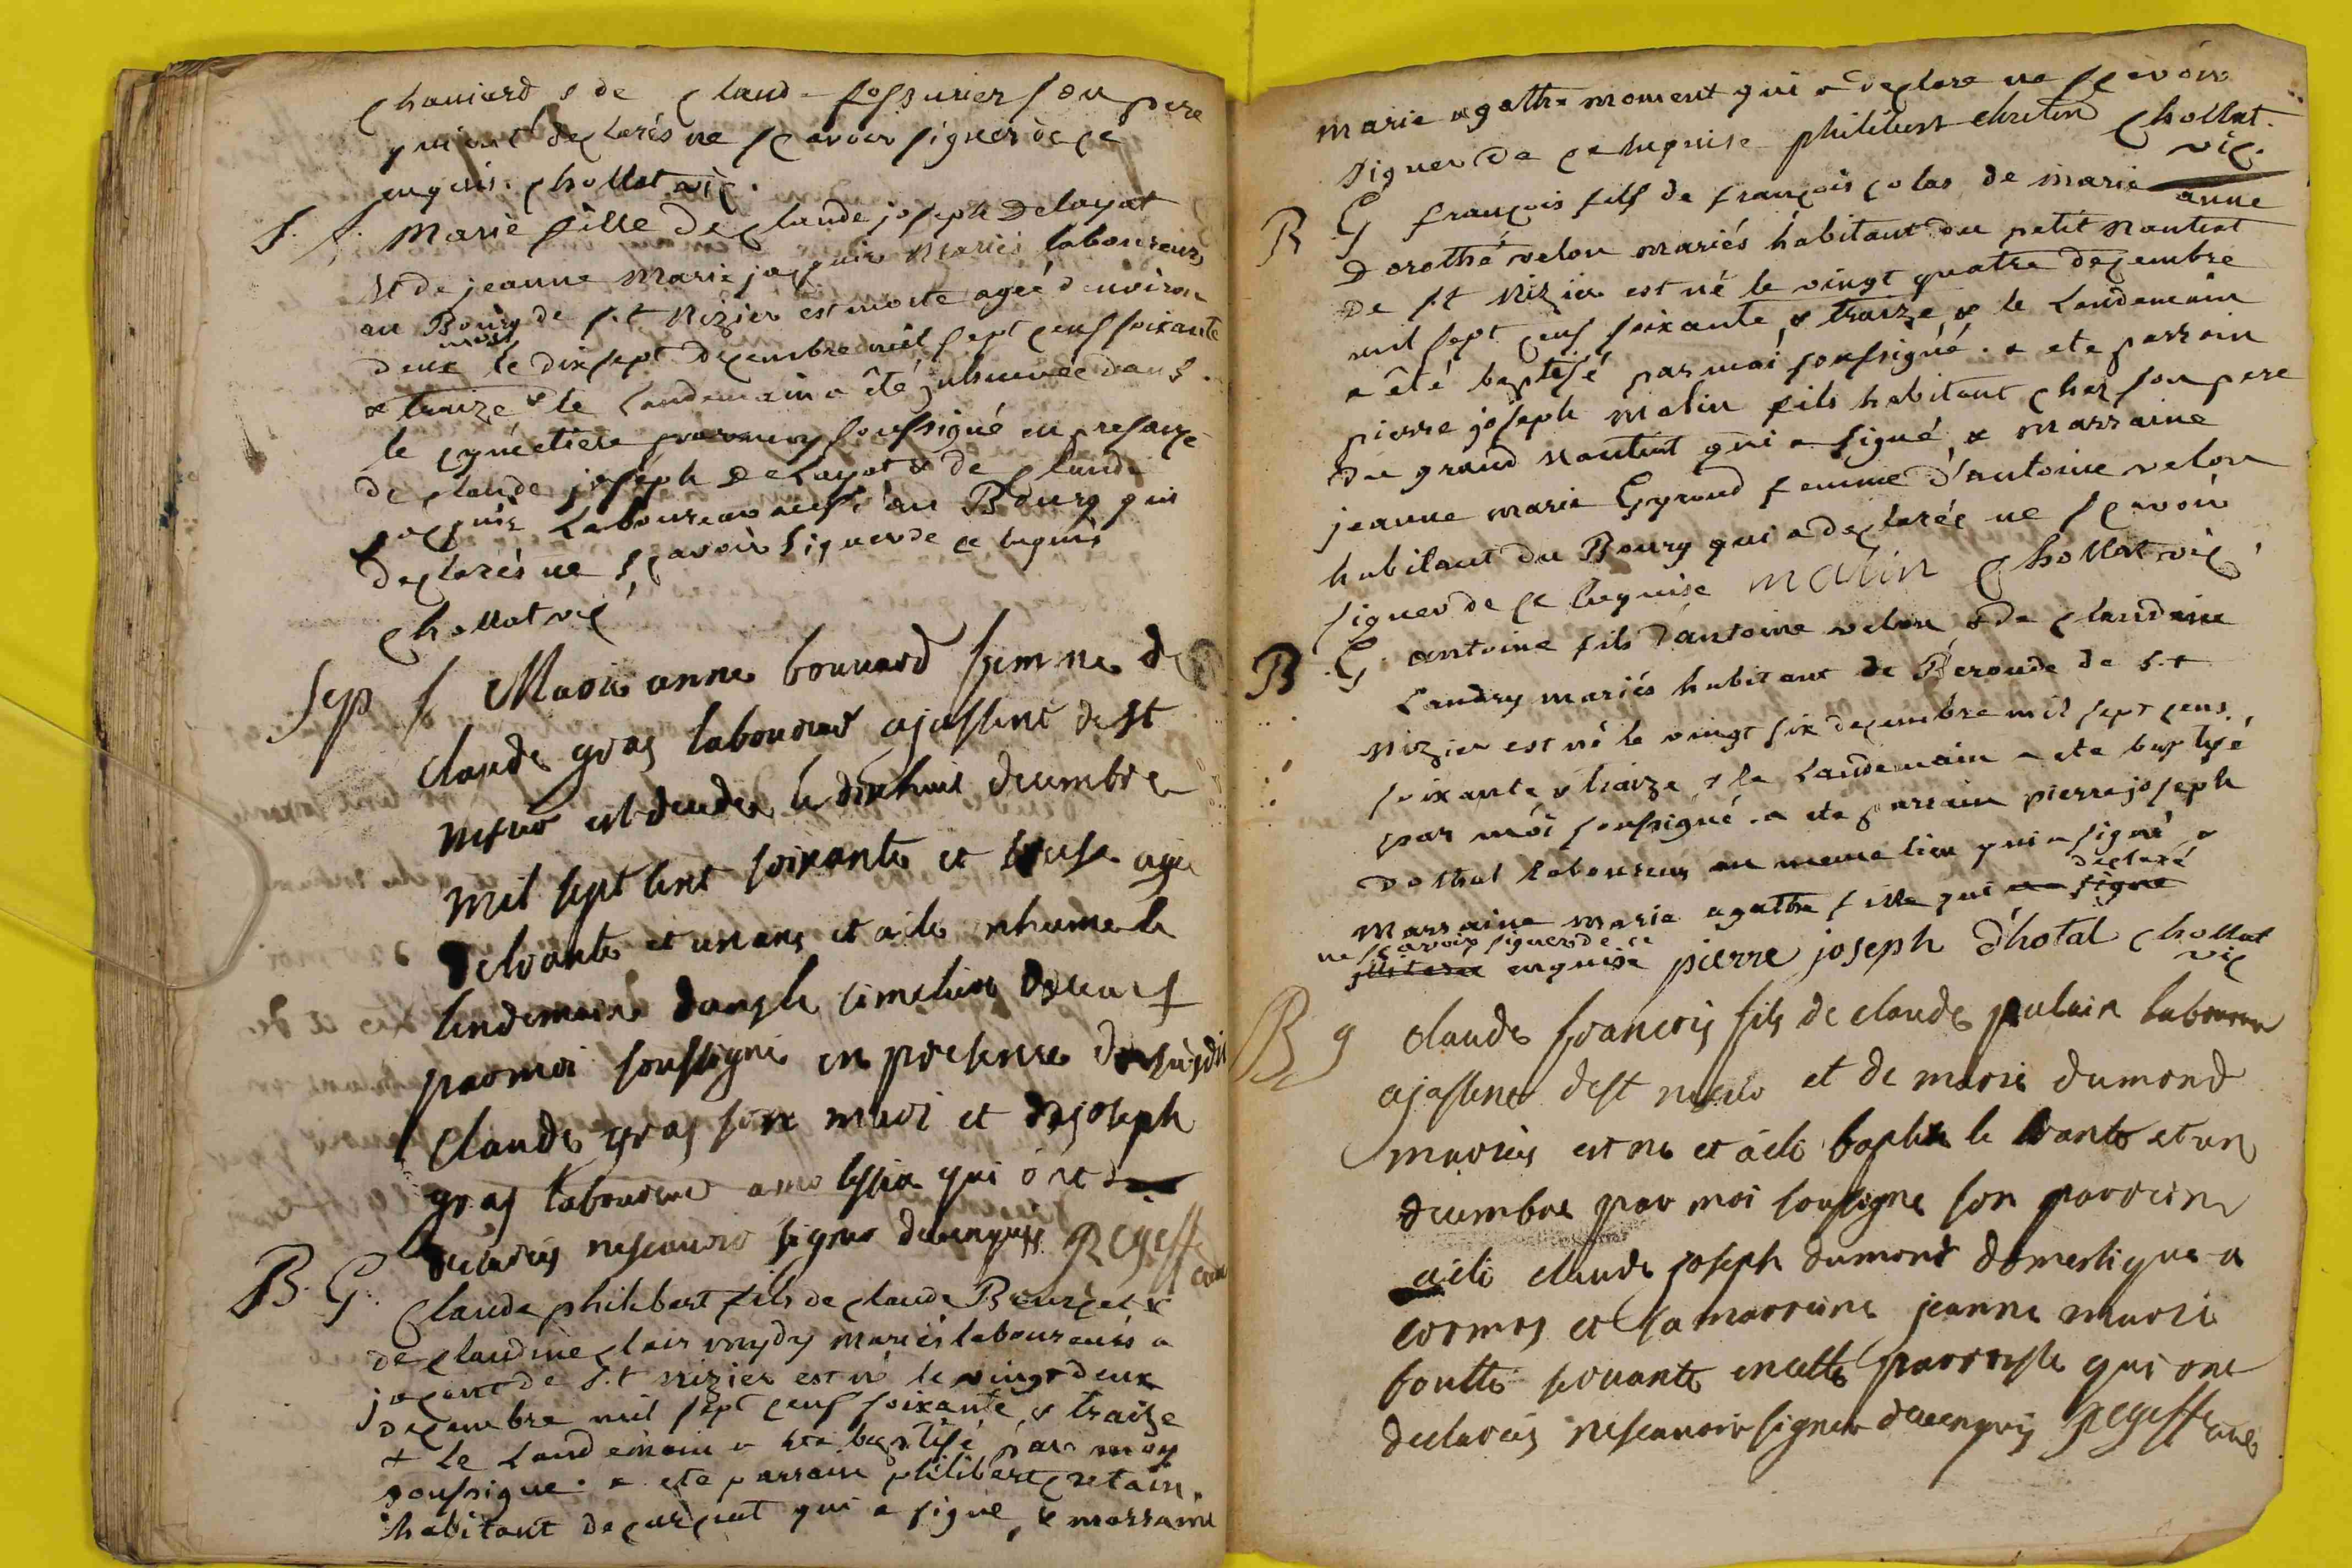 chaniard & de claude fossurier son pere
qui ont declarés ne scavoir signer de ce
enquis. chollat vic.
S. f. Marie fille de claude joseph Delayat
et de jeanne Marie jacquir Mariés laboureurs
au Bourg de S.t Nizier est morte ageé d'environ
deux mois le dix sept decembre mil sept cens soixante
& traize & le Landemain a été inhumée dans
le cymetiere par moy soussigné en presance
de claude joseph Delayat & de claude
jacquir Laboureur aussi au Bourg qui
declarés ne scavoir signer de ce enquis
chollat vic
Sep f Marie anne bouvard femme de
claude gras laboureur a jassene de st
nisier est decedee le dixhuit decembre
mil sept cent soixante et treise agee
de soixante et un ans et a ete inhumé le
lendemain dans le cimetiere de ceans
par moi soussigné en presence du susdit
claude gras son mari et de joseph
gras laboureur qui ont
declarés ne scavoir signer de ce enquis
B. G. Claude philibert fils de claude Bourcet &
de claudine mariés laboureurs a
de S.t Nizier est né le vingt deux
decembre mil sept cens soixante & traize
& le Landemain a ete baptisé par moy
soussigné. a ete parrain philibert cretain.
habitant de curciat qui a signé, & marraine
marie agathe moment qui a declaré ne scavoir
signer de ce enquise philibert chretin chollat
vic.
B G françois fils de françois colas de marie anne
Dorothé velon mariés habitant du petit Nantent
de S.t Nizier est né le vingt quatre decembre
mil sept cens soixante & traize & le Landemain
a été baptisé par moi soussigné. a ete parrain
pierre joseph Malin fils habitant chez son pere
du grand Nantent qui a signé, & marraine
jeanne marie Gyroud femme d'antoine velon
habitant du Bourg qui a declarée ne scavoir
signer de ce enquise malin chollat vic
B G antoine fils d'antoine velon & de claudine
Landry mariés habitant de Beroude de S.t
Nizier est né le vingt six decembre mil sept cens
soixante & traize & le Landemain a ete baptisé
par moi soussigné. a ete parrain pierre joseph
Dothal laboureur au meme lieu qui a signé &
marraine marie agathe fille qui a signé declaré
ne scavoir signer de ce enquise pierre joseph d'hotal chollat
vic
B g claude francois fils de claude pulain laboureur
a jassene de st nisier et de marie dumond
mariés est ne et a ete baptise le trante et un
decembre par moi soussigne son parrein
a ete claude joseph dumond domestique a
cormos et sa marreine jeanne marie
foutte servante en cette parroisse qui ont
declarés ne scavoir signer de ce enquis